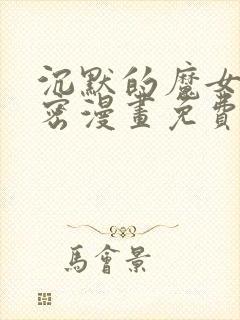 沉默的魔女
密漫畫免費
馬會景